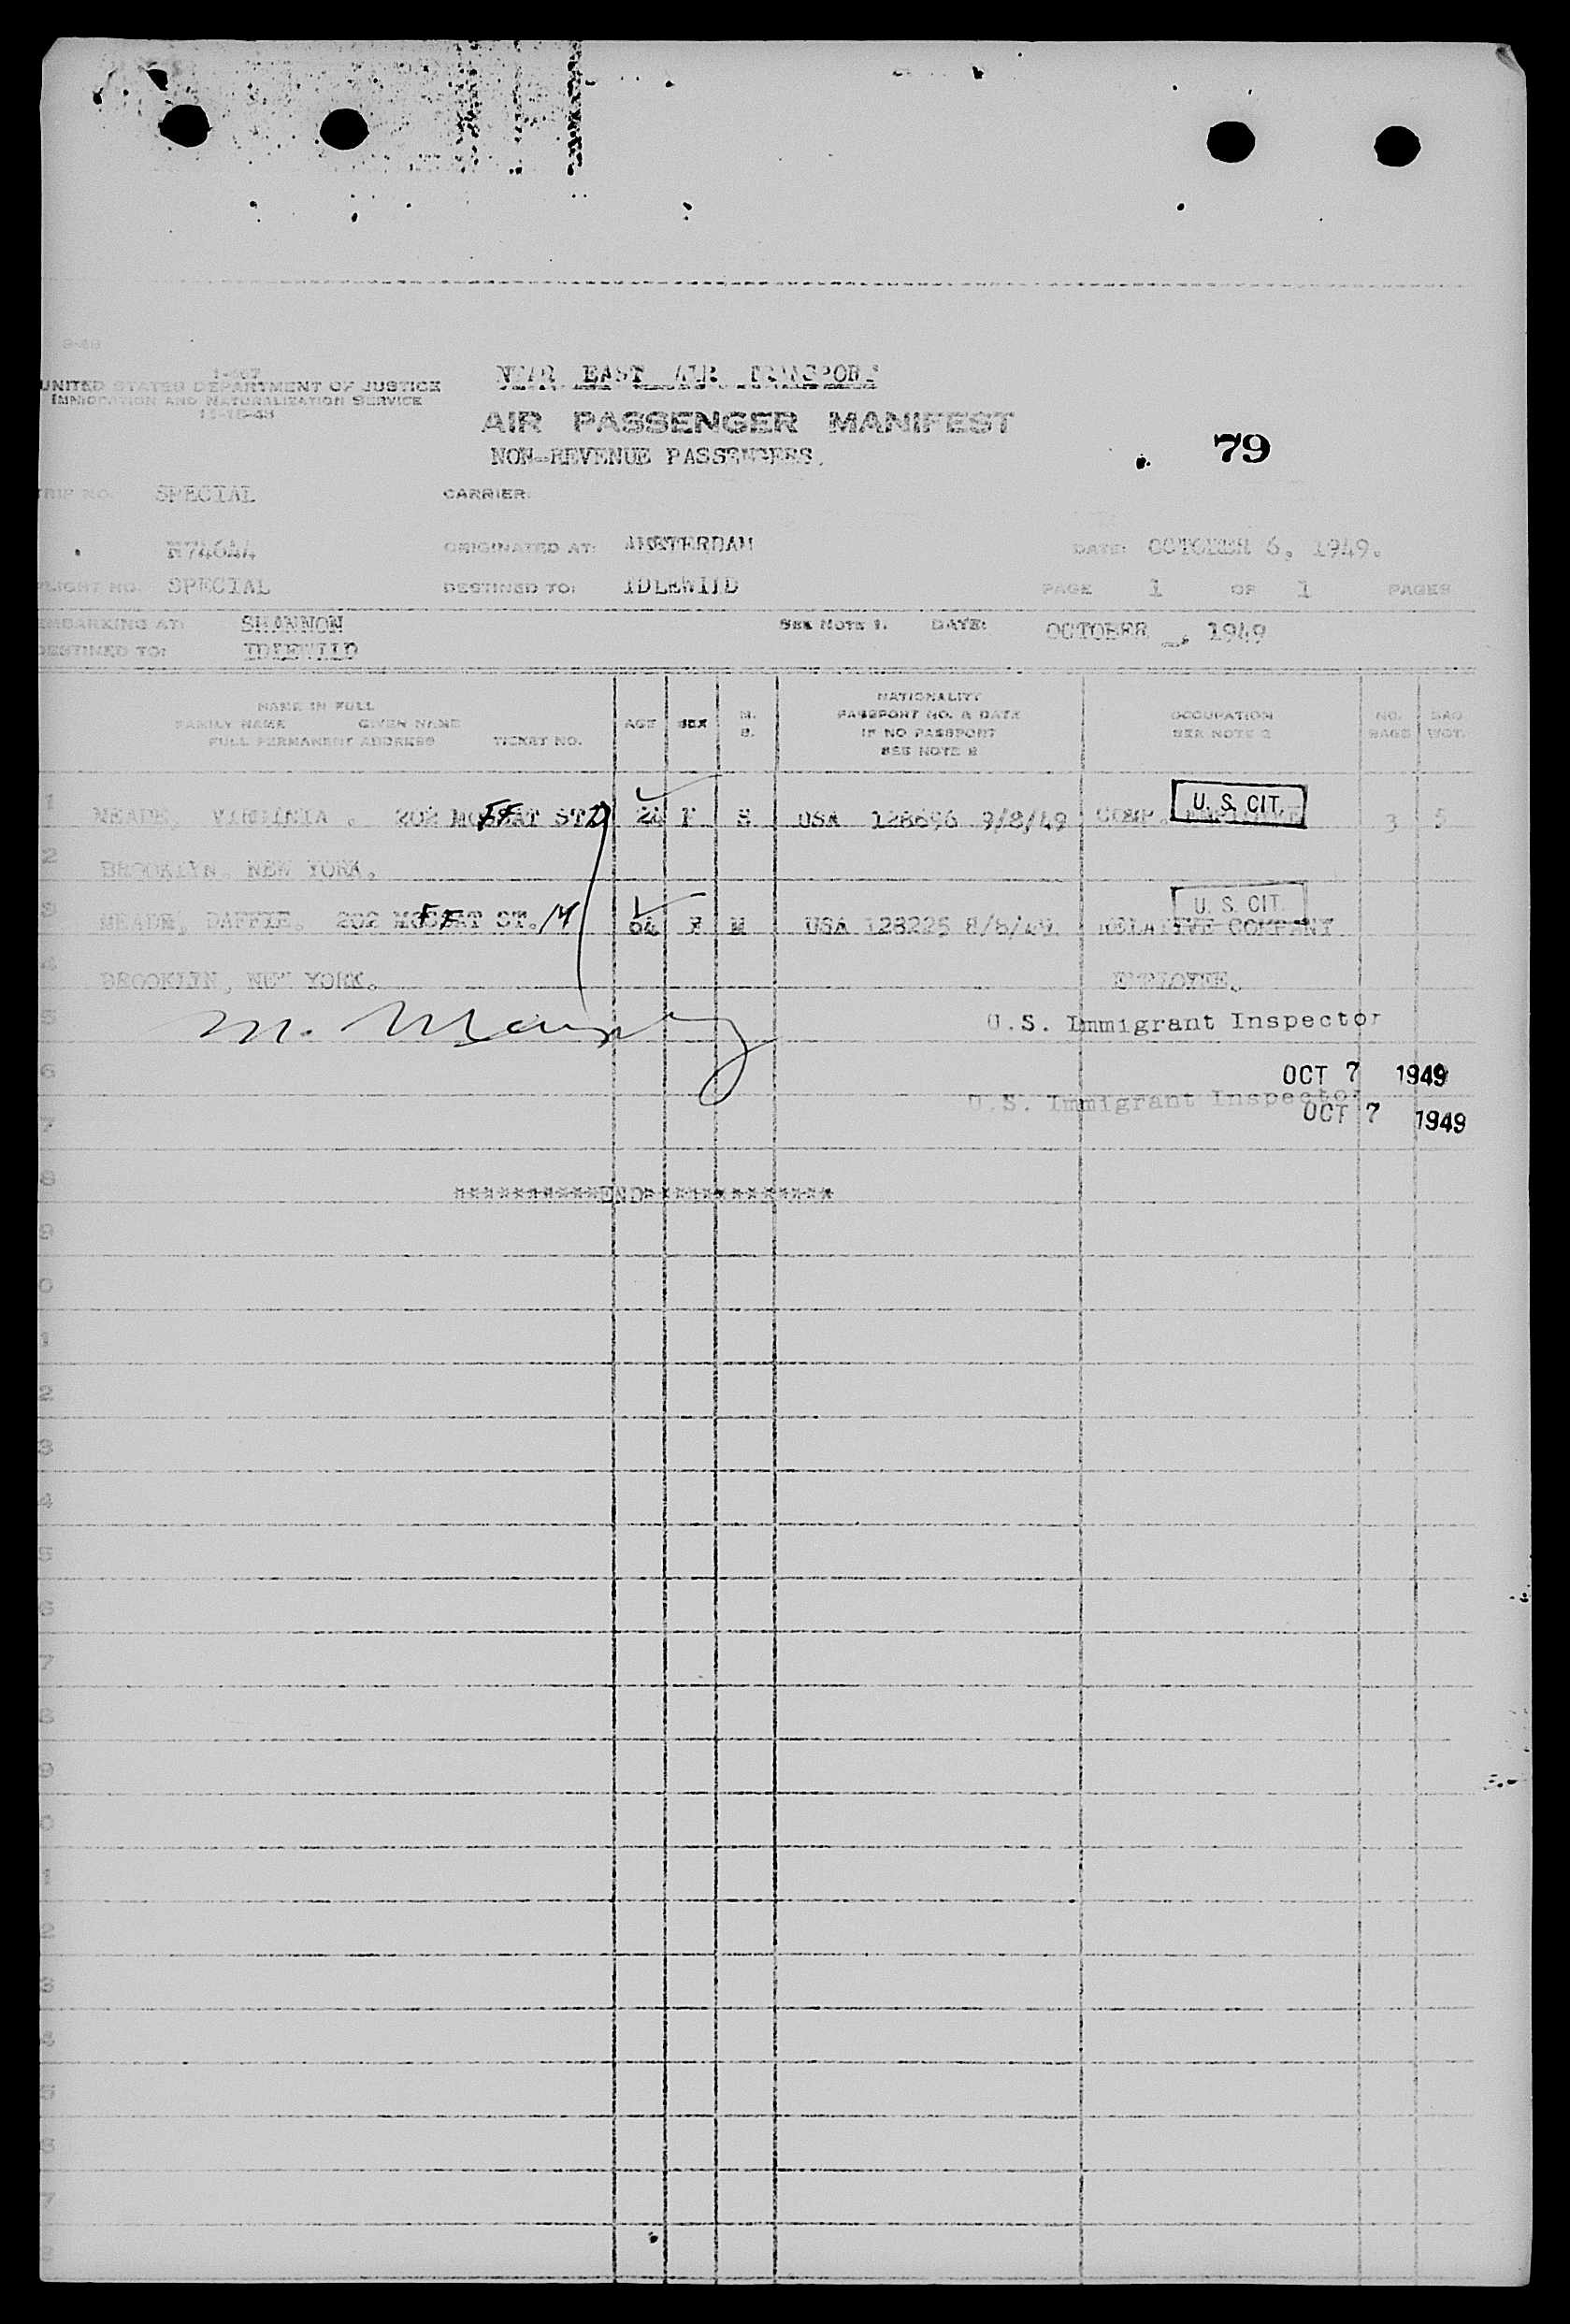 9-49
I-467
UNITED STATES DEPARTMENT OF JUSTICE
IMMIGRATION AND NATURALIZATION SERVICE
NEAR EAST AIR TRANSPORT
AIR PASSENGER MANIFEST
NON-REVENUE PASSENGERS.
79
TRIP NO. SPECIAL CARRIER:
N74644 ORIGINATED AT: AMSTERDAM DATE: OCTOBER 6, 1949.
FLIGHT NO. SPECIAL DESTINED TO: IDLEWILD PAGE 1 OF 1 PAGES
EMBARKING AT: SHANNON SEE NOTE 1. DATE: OCTOBER , 1949
DESTINED TO: IDLEWILD
NAME IN FULL
FAMILY NAME GIVEN NAME
FULL PERMANENT ADDRESS TICKET NO.
AGE SEX M. S.
NATIONALITY
PASSPORT NO. & DATE
IF NO PASSPORT
SEE NOTE 2
OCCUPATION
SEE NOTE 2
NO. BAGS
BAG WGT.
1 MEADE, VIRGINIA . 202 MOFFAT ST. 24 F S USA 128696 9/8/49 COMP. EMPLOYEE 3 5
U. S. CIT.
2 BROOKLYN, NEW YORK.
3 MEADE, DAFFIE. 202 MOFFAT ST. 64 F M USA 128225 8/8/49 RELATIVE COMPANY
U. S. CIT.
4 BROOKLYN, NEW YORK. EMPLOYEE.
5 U.S. Immigrant Inspector
6 OCT 7 1949
U.S. Immigrant Inspector
7 OCT 7 1949
8 ***********END**************
9
0
1
2
3
4
5
6
7
8
9
0
1
2
3
4
5
6
7
8